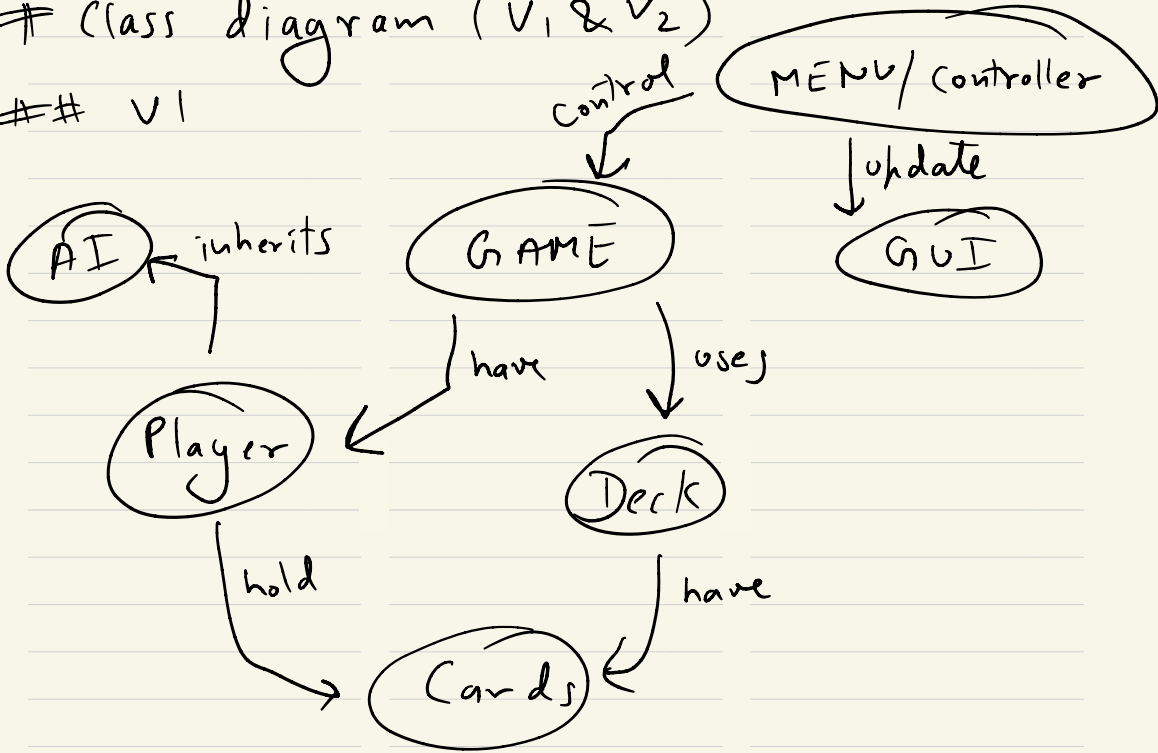 # Class diagram (V1 & V2)
## V1
MENU/Controller
control
update
AI
inherits
GAME
GUI
have
uses
Player
Deck
hold
have
Cards